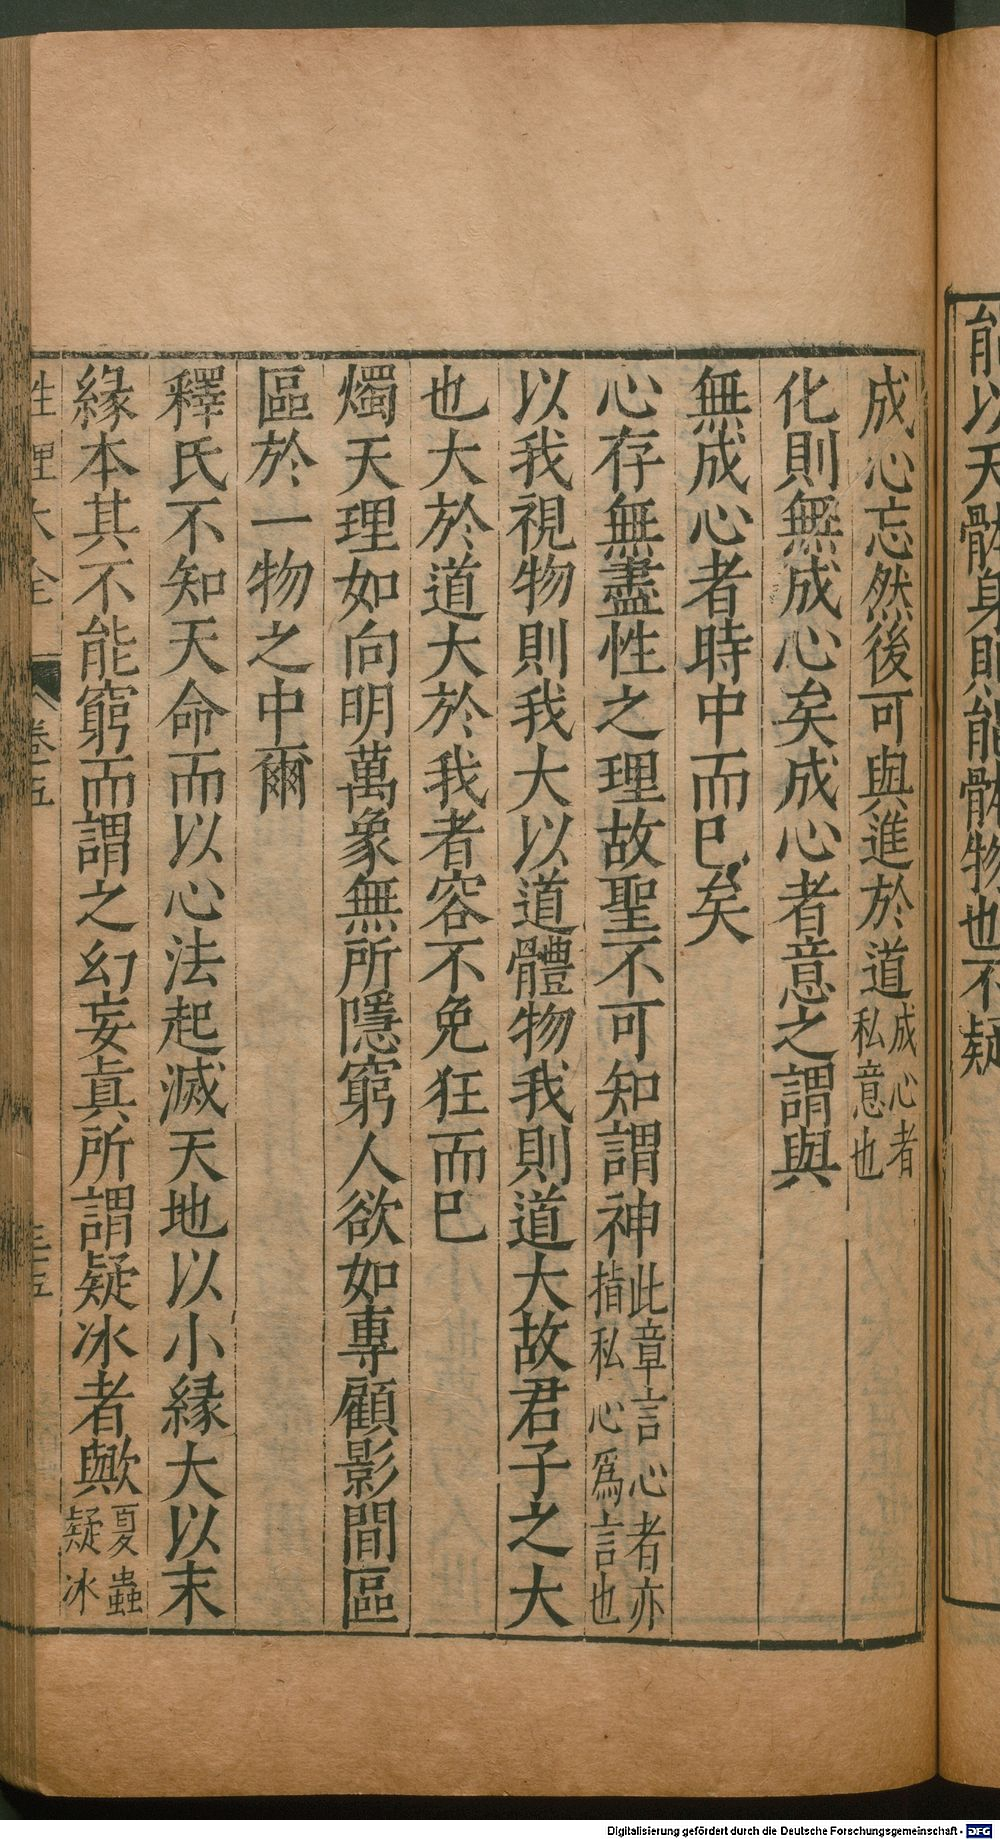 能以天體身則能體物也不疑
成心忘然後可與進於道成心者私意也
化則無成心矣成心者意之謂與
無成心者時中而已矣
心存無盡性之理故聖不可知謂神此章言心者亦指私心為言也
以我視物則我大以道體物我則道大故君子之大
也大於道大於我者容不免狂而已
燭天理如向明萬象無所隱窮人欲如專顧影間區
區於一物之中爾
釋氏不知天命而以心法起滅天地以小緣大以末
緣本其不能窮而謂之幻妄真所謂疑冰者與夏蟲疑冰
性理大全 卷五 三五
Digitalisierung gefördert durch die Deutsche Forschungsgemeinschaft - DFG